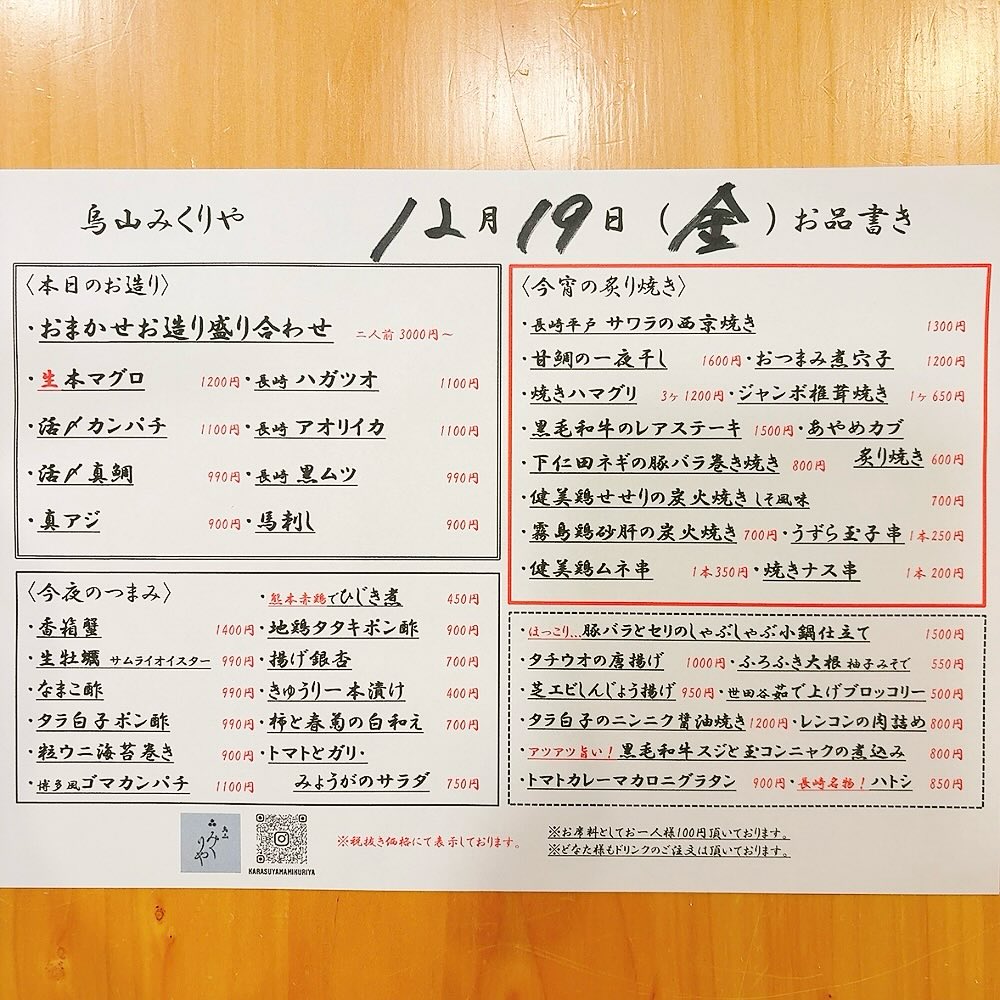 烏山みくりや 12月19日(金)お品書き
〈本日のお造り〉
・おまかせお造り盛り合わせ 二人前 3000円～
・生本マグロ 1200円・長崎 ハガツオ 1100円
・活〆カンパチ 1100円・長崎 アオリイカ 1100円
・活〆真鯛 990円・長崎 黒ムツ 990円
・真アジ 900円・馬刺し 900円
〈今夜のつまみ〉 ・熊本赤鶏でひじき煮 450円
・香箱蟹 1400円・地鶏タタキポン酢 900円
・生牡蠣 サムライオイスター 990円・揚げ銀杏 700円
・なまこ酢 990円・きゅうり一本漬け 400円
・タラ白子ポン酢 990円・柿と春菊の白和え 700円
・粒ウニ海苔巻き 900円・トマトとガリ・
・博多風ゴマカンパチ 1100円 みょうがのサラダ 750円
〈今宵の炙り焼き〉
・長崎平戸 サワラの西京焼き 1300円
・甘鯛の一夜干し 1600円・おつまみ煮穴子 1200円
・焼きハマグリ 3ヶ 1200円・ジャンボ椎茸焼き 1ヶ 650円
・黒毛和牛のレアステーキ 1500円・あやめカブ
・下仁田ネギの豚バラ巻き焼き 800円 炙り焼き 600円
・健美鶏せせりの炭火焼き しそ風味 700円
・霧島鶏砂肝の炭火焼き 700円・うずら玉子串 1本 250円
・健美鶏ムネ串 1本 350円・焼きナス串 1本 200円
・ほっこり…豚バラとセリのしゃぶしゃぶ小鍋仕立て 1500円
・タチウオの唐揚げ 1000円・ふろふき大根 柚子みそで 550円
・芝エビしんじょう揚げ 950円・世田谷茹で上げブロッコリー 500円
・タラ白子のニンニク醤油焼き 1200円・レンコンの肉詰め 800円
・アツアツ旨い！黒毛和牛スジと玉コンニャクの煮込み 800円
・トマトカレーマカロニグラタン 900円・長崎名物！ハトシ 850円
烏山
みくりや
KARASUYAMAMIKURIYA
※税抜き価格にて表示しております。
※お席料としてお一人様100円頂いております。
※どなた様もドリンクのご注文は頂いております。